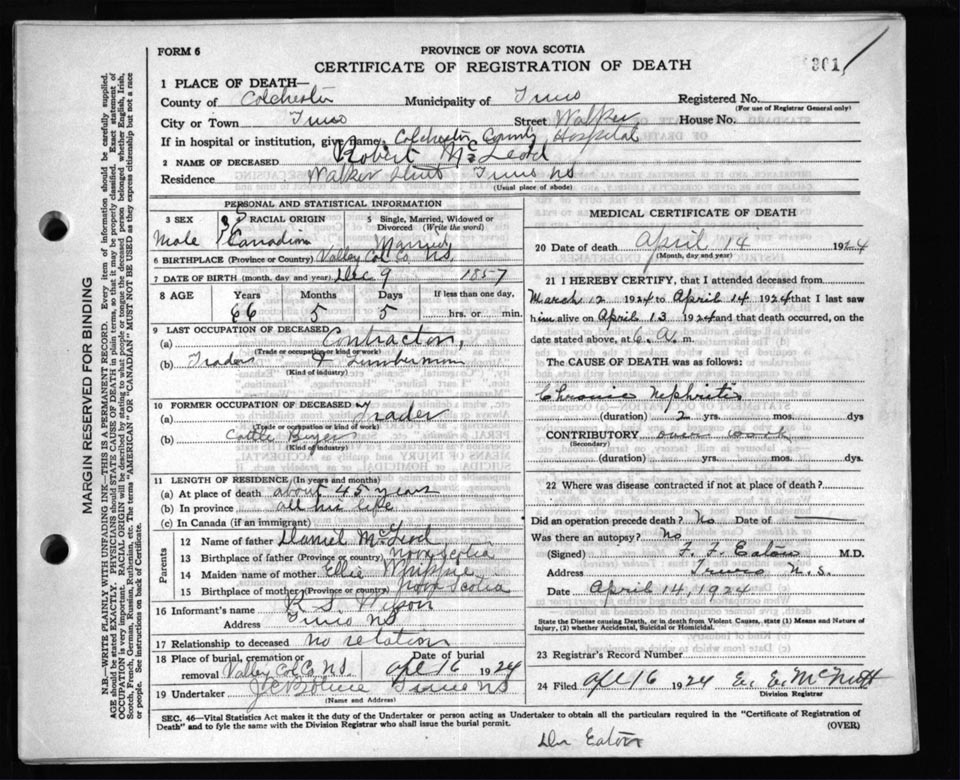 FORM 6
PROVINCE OF NOVA SCOTIA
CERTIFICATE OF REGISTRATION OF DEATH
301
1 PLACE OF DEATH—
County of Colchester Municipality of Truro Registered No.
(For use of Registrar General only)
City or Town Truro Street Walker House No.
If in hospital or institution, give name Colchester County Hospital
2 NAME OF DECEASED Robert McLeod
Residence Walker Street Truro NS
(Usual place of abode)
PERSONAL AND STATISTICAL INFORMATION
3 SEX 4 RACIAL ORIGIN 5 Single, Married, Widowed or Divorced (Write the word)
Male Canadian Married
6 BIRTHPLACE (Province or Country) Valley Col. Co. N.S.
7 DATE OF BIRTH (month, day and year) Dec 9 1857
8 AGE Years Months Days If less than one day,
66 5 5 hrs. or min.
9 LAST OCCUPATION OF DECEASED
(a) Contractor,
(Trade or occupation or kind of work)
(b) Trader & Lumberman
(Kind of industry)
10 FORMER OCCUPATION OF DECEASED
(a) Trader
(Trade or occupation or kind of work)
(b) Cattle Buyer
(Kind of industry)
11 LENGTH OF RESIDENCE (In years and months)
(a) At place of death about 45 years
(b) In province all his life
(c) In Canada (if an immigrant)
Parents
12 Name of father Daniel McLeod
13 Birthplace of father (Province or country) Nova Scotia
14 Maiden name of mother Ellie Whippie
15 Birthplace of mother (Province or country) Nova Scotia
16 Informant's name
Address Truro NS
17 Relationship to deceased no relation
18 Place of burial, cremation or removal Valley Col. Co. N.S. Date of burial Apl 16 1924
19 Undertaker Truro NS
(Name and Address)
MEDICAL CERTIFICATE OF DEATH
20 Date of death April 14 1924
(Month, day and year)
21 I HEREBY CERTIFY, that I attended deceased from
March 12 1924 to April 14 1924 that I last saw
him alive on April 13 1924 and that death occurred, on
the date stated above, at 6. A. m.
The CAUSE OF DEATH was as follows:
Chronic Nephritis
(duration) 2 yrs. mos. dys
CONTRIBUTORY over work
(Secondary)
(duration) yrs. mos. dys
22 Where was disease contracted if not at place of death?
Did an operation precede death? No Date of —
Was there an autopsy? No
(Signed) F. F. Eaton M.D.
Address Truro N.S.
Date April 14, 1924
State the Disease causing Death, or in death from Violent Causes, state (1) Means and Nature of Injury, (2) whether Accidental, Suicidal or Homicidal.
23 Registrar's Record Number
24 Filed Apl 16 1924 E. E. McNutt
Division Registrar
SEC. 46—Vital Statistics Act makes it the duty of the Undertaker or person acting as Undertaker to obtain all the particulars required in the "Certificate of Registration of
Death" and to fyle the same with the Division Registrar who shall issue the burial permit. (OVER)
Dr Eaton
MARGIN RESERVED FOR BINDING
N.B.—WRITE PLAINLY WITH UNFADING INK—THIS IS A PERMANENT RECORD. Every item of information should be carefully supplied.
AGE should be stated EXACTLY. PHYSICIANS should STATE CAUSE OF DEATH in plain terms, so that it may be properly classified. Exact statement of
OCCUPATION is very important. RACIAL ORIGIN will be described by stating to what people or tongue the deceased person belonged whether English, Irish,
Scotch, French, German, Russian, Ruthenian, etc. The terms "AMERICAN" OR "CANADIAN" MUST NOT BE USED as they express citizenship but not a race
or people. See instructions on back of Certificate.